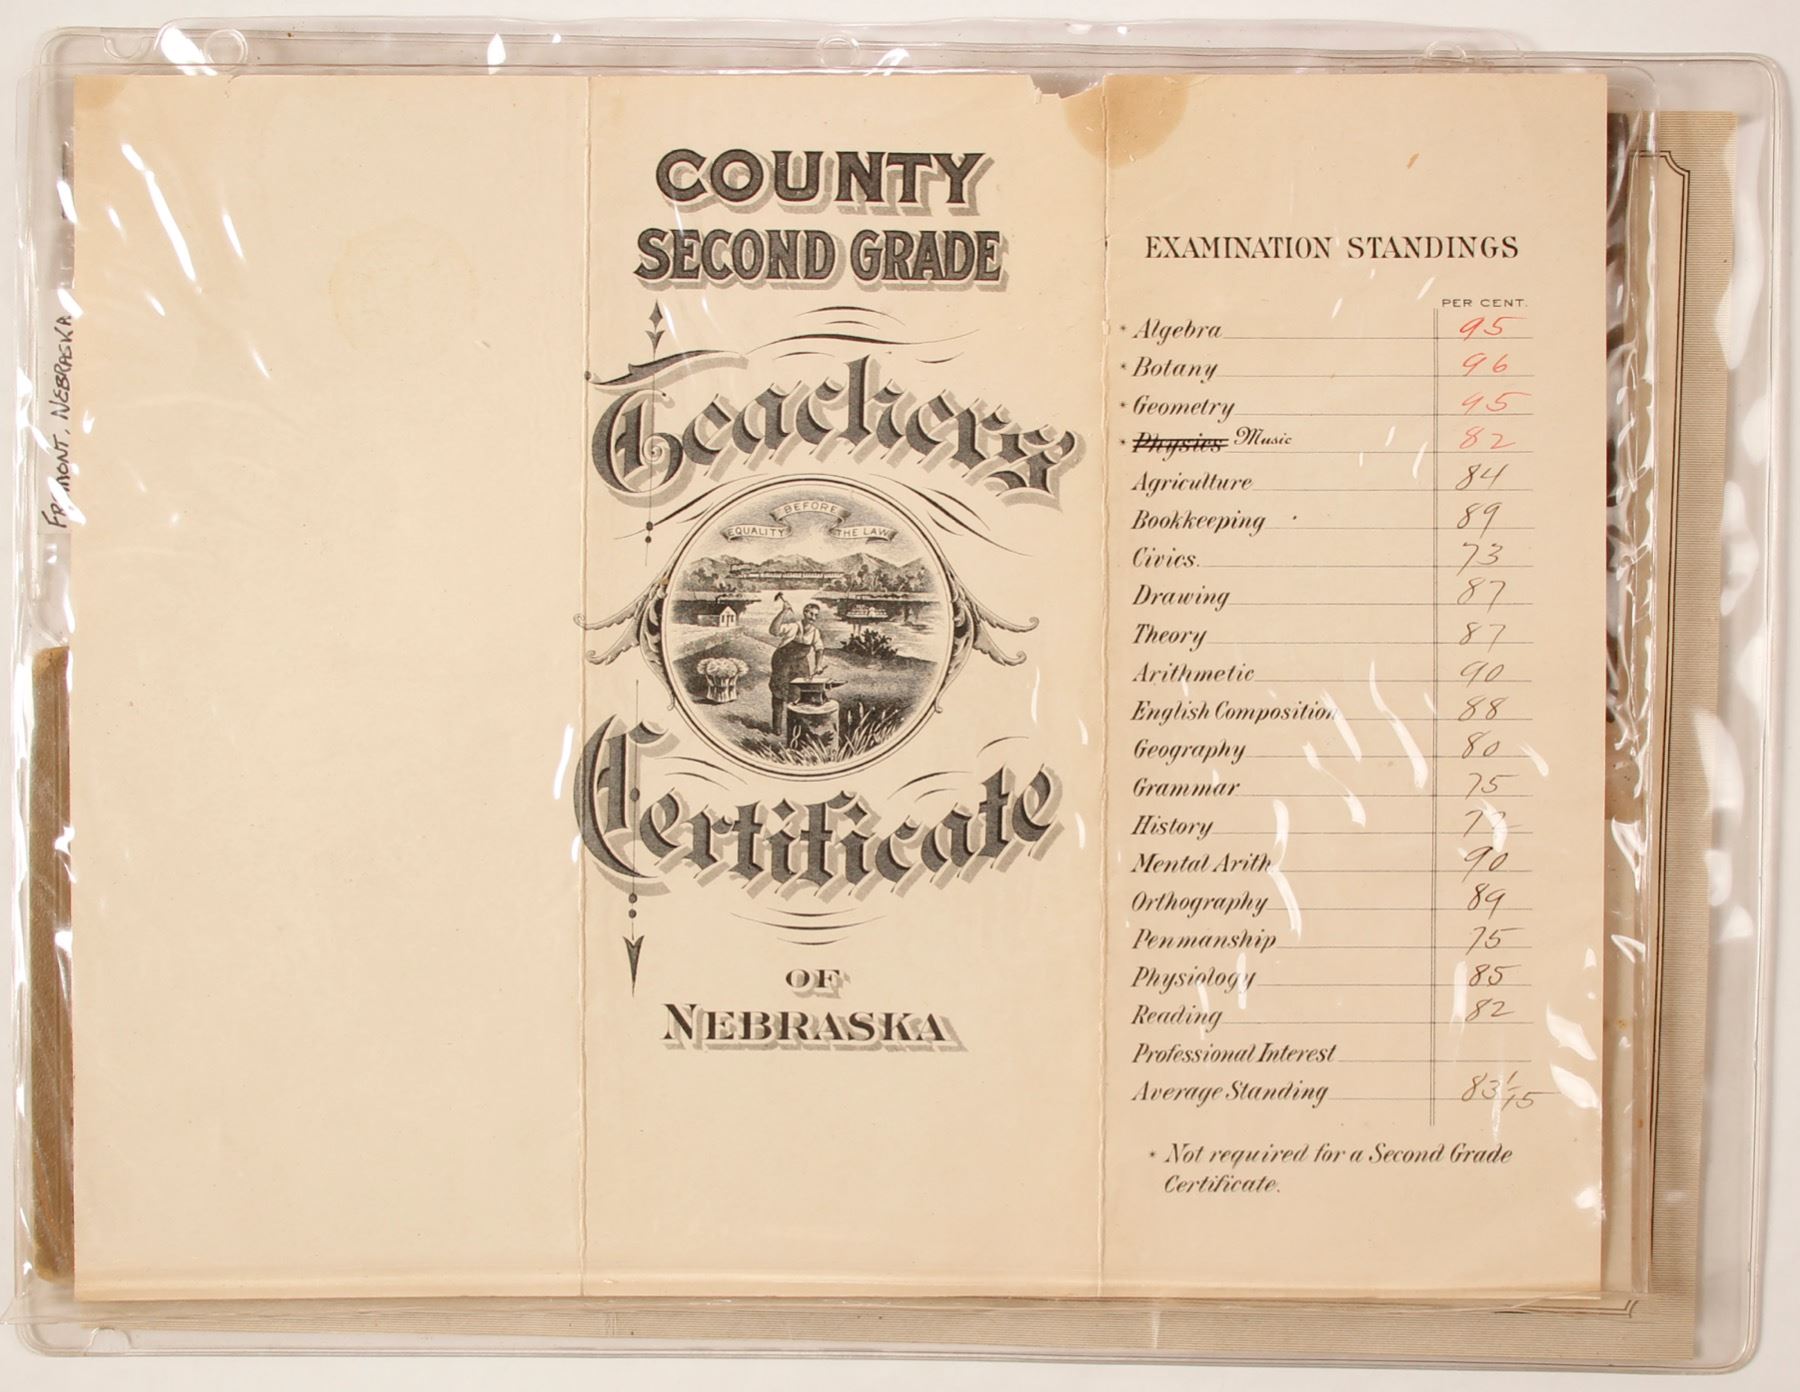 FREMONT, NEBRASKA
COUNTY
SECOND GRADE
Teachers'
EQUALITY BEFORE THE LAW
Certificate
OF
NEBRASKA
EXAMINATION STANDINGS
PER CENT.
* Algebra 95
* Botany 96
* Geometry 95
* Physics Music 82
Agriculture 84
Bookkeeping 89
Civics. 73
Drawing 87
Theory 87
Arithmetic 90
English Composition 88
Geography 80
Grammar 75
History 72
Mental Arith 90
Orthography 89
Penmanship 75
Physiology 85
Reading 82
Professional Interest
Average Standing 83 1/15
* Not required for a Second Grade
Certificate.